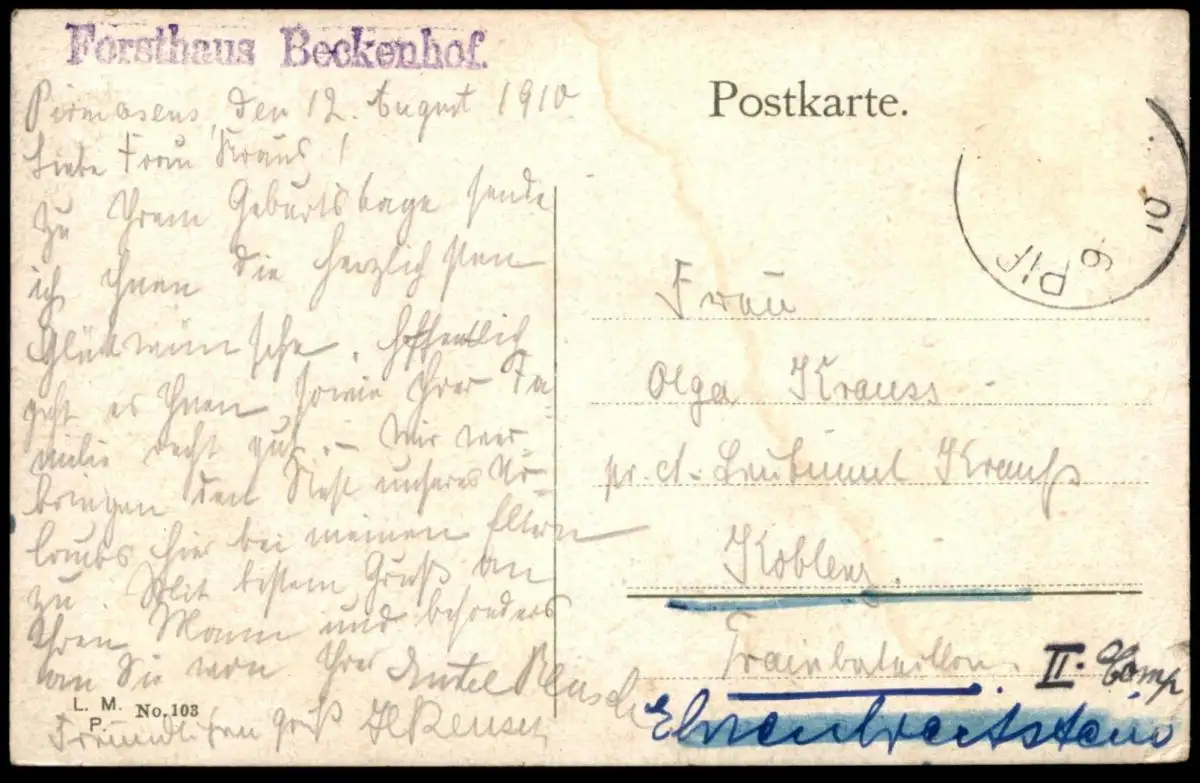 Forsthaus Beckenhof.
Pirmasens, den 12. August 1910
Liebe Frau Kraus!
Zu Ihrem Geburtstage sende
ich Ihnen die herzlichsten
Glückwünsche. Hoffentlich
geht es Ihnen, sowie Ihrer Fa-
milie recht gut. – Wir ver-
bringen den Rest unseres Ur-
laubs hier bei meinen Eltern
zu. Mit bestem Gruß an
Ihren Mann und besonders
an Sie von Ihrer
Freundlichen Gruß
L. M.
P. No. 103
Postkarte.
10
6
Frau
Olga Krauss
pr. ad. Leutnant Krauß
Koblenz.
Trainbataillon. II. Comp
Ehrenbreitstein